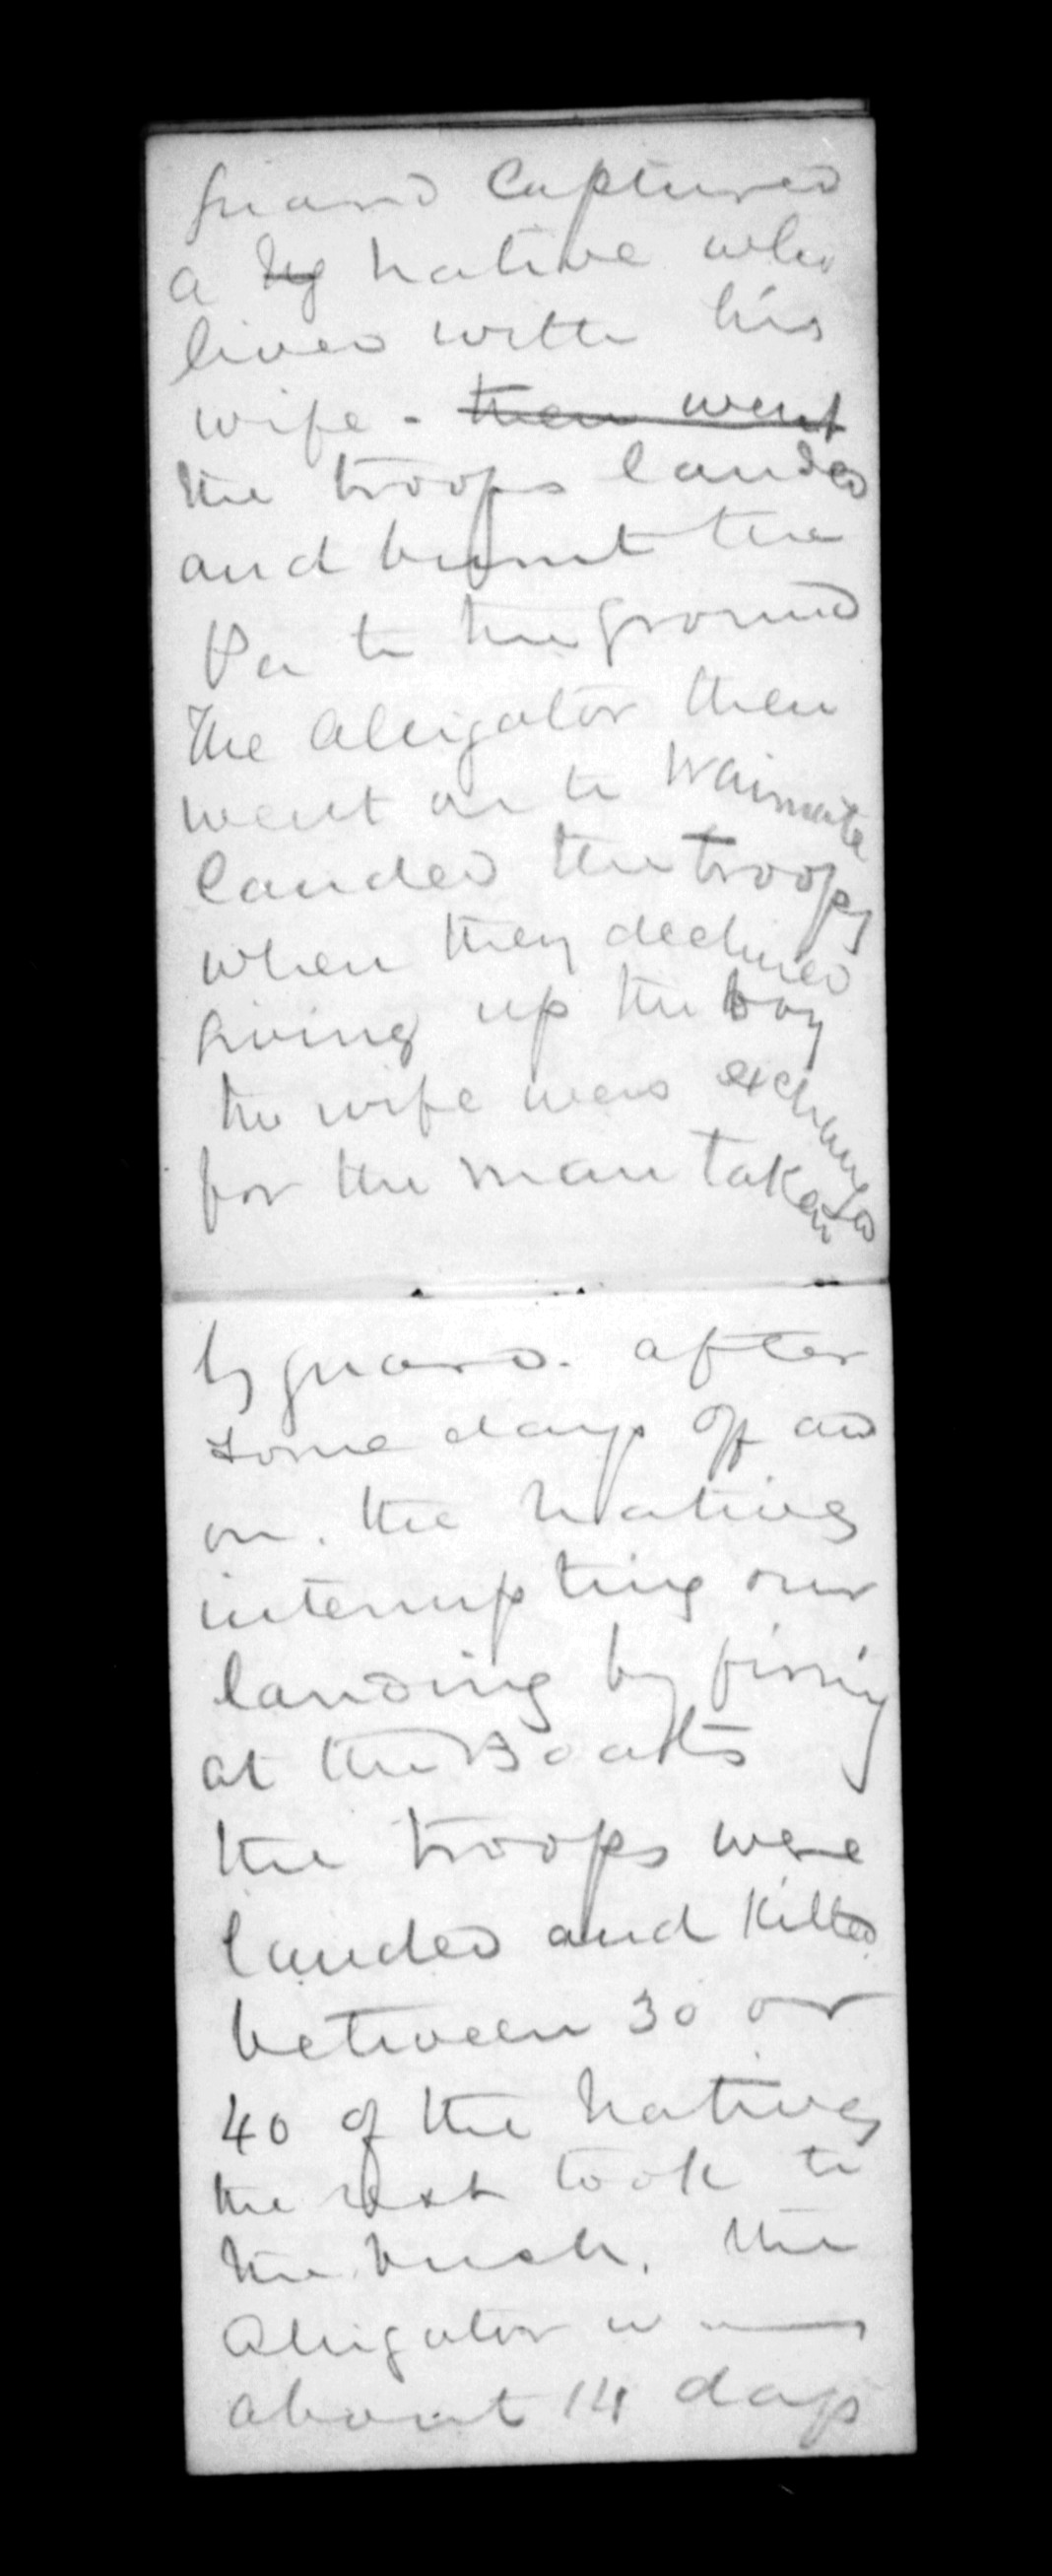 Guard Captured
a Ng native who
lived with his
wife - then went
the troops landed
and burnt the
Pa to the ground
The Alligator then
went on to Waimate
landed the troops
when they declined
Giving up the boy
the wife was exchanged
for the man taken
by guard. after
some days off and
on. the Natives
interrupting our
landing by firing
at the Boats
the troops were
landed and killed
between 30 or
40 of the Natives
the rest took to
the bush. the
Aligator was
about 14 days